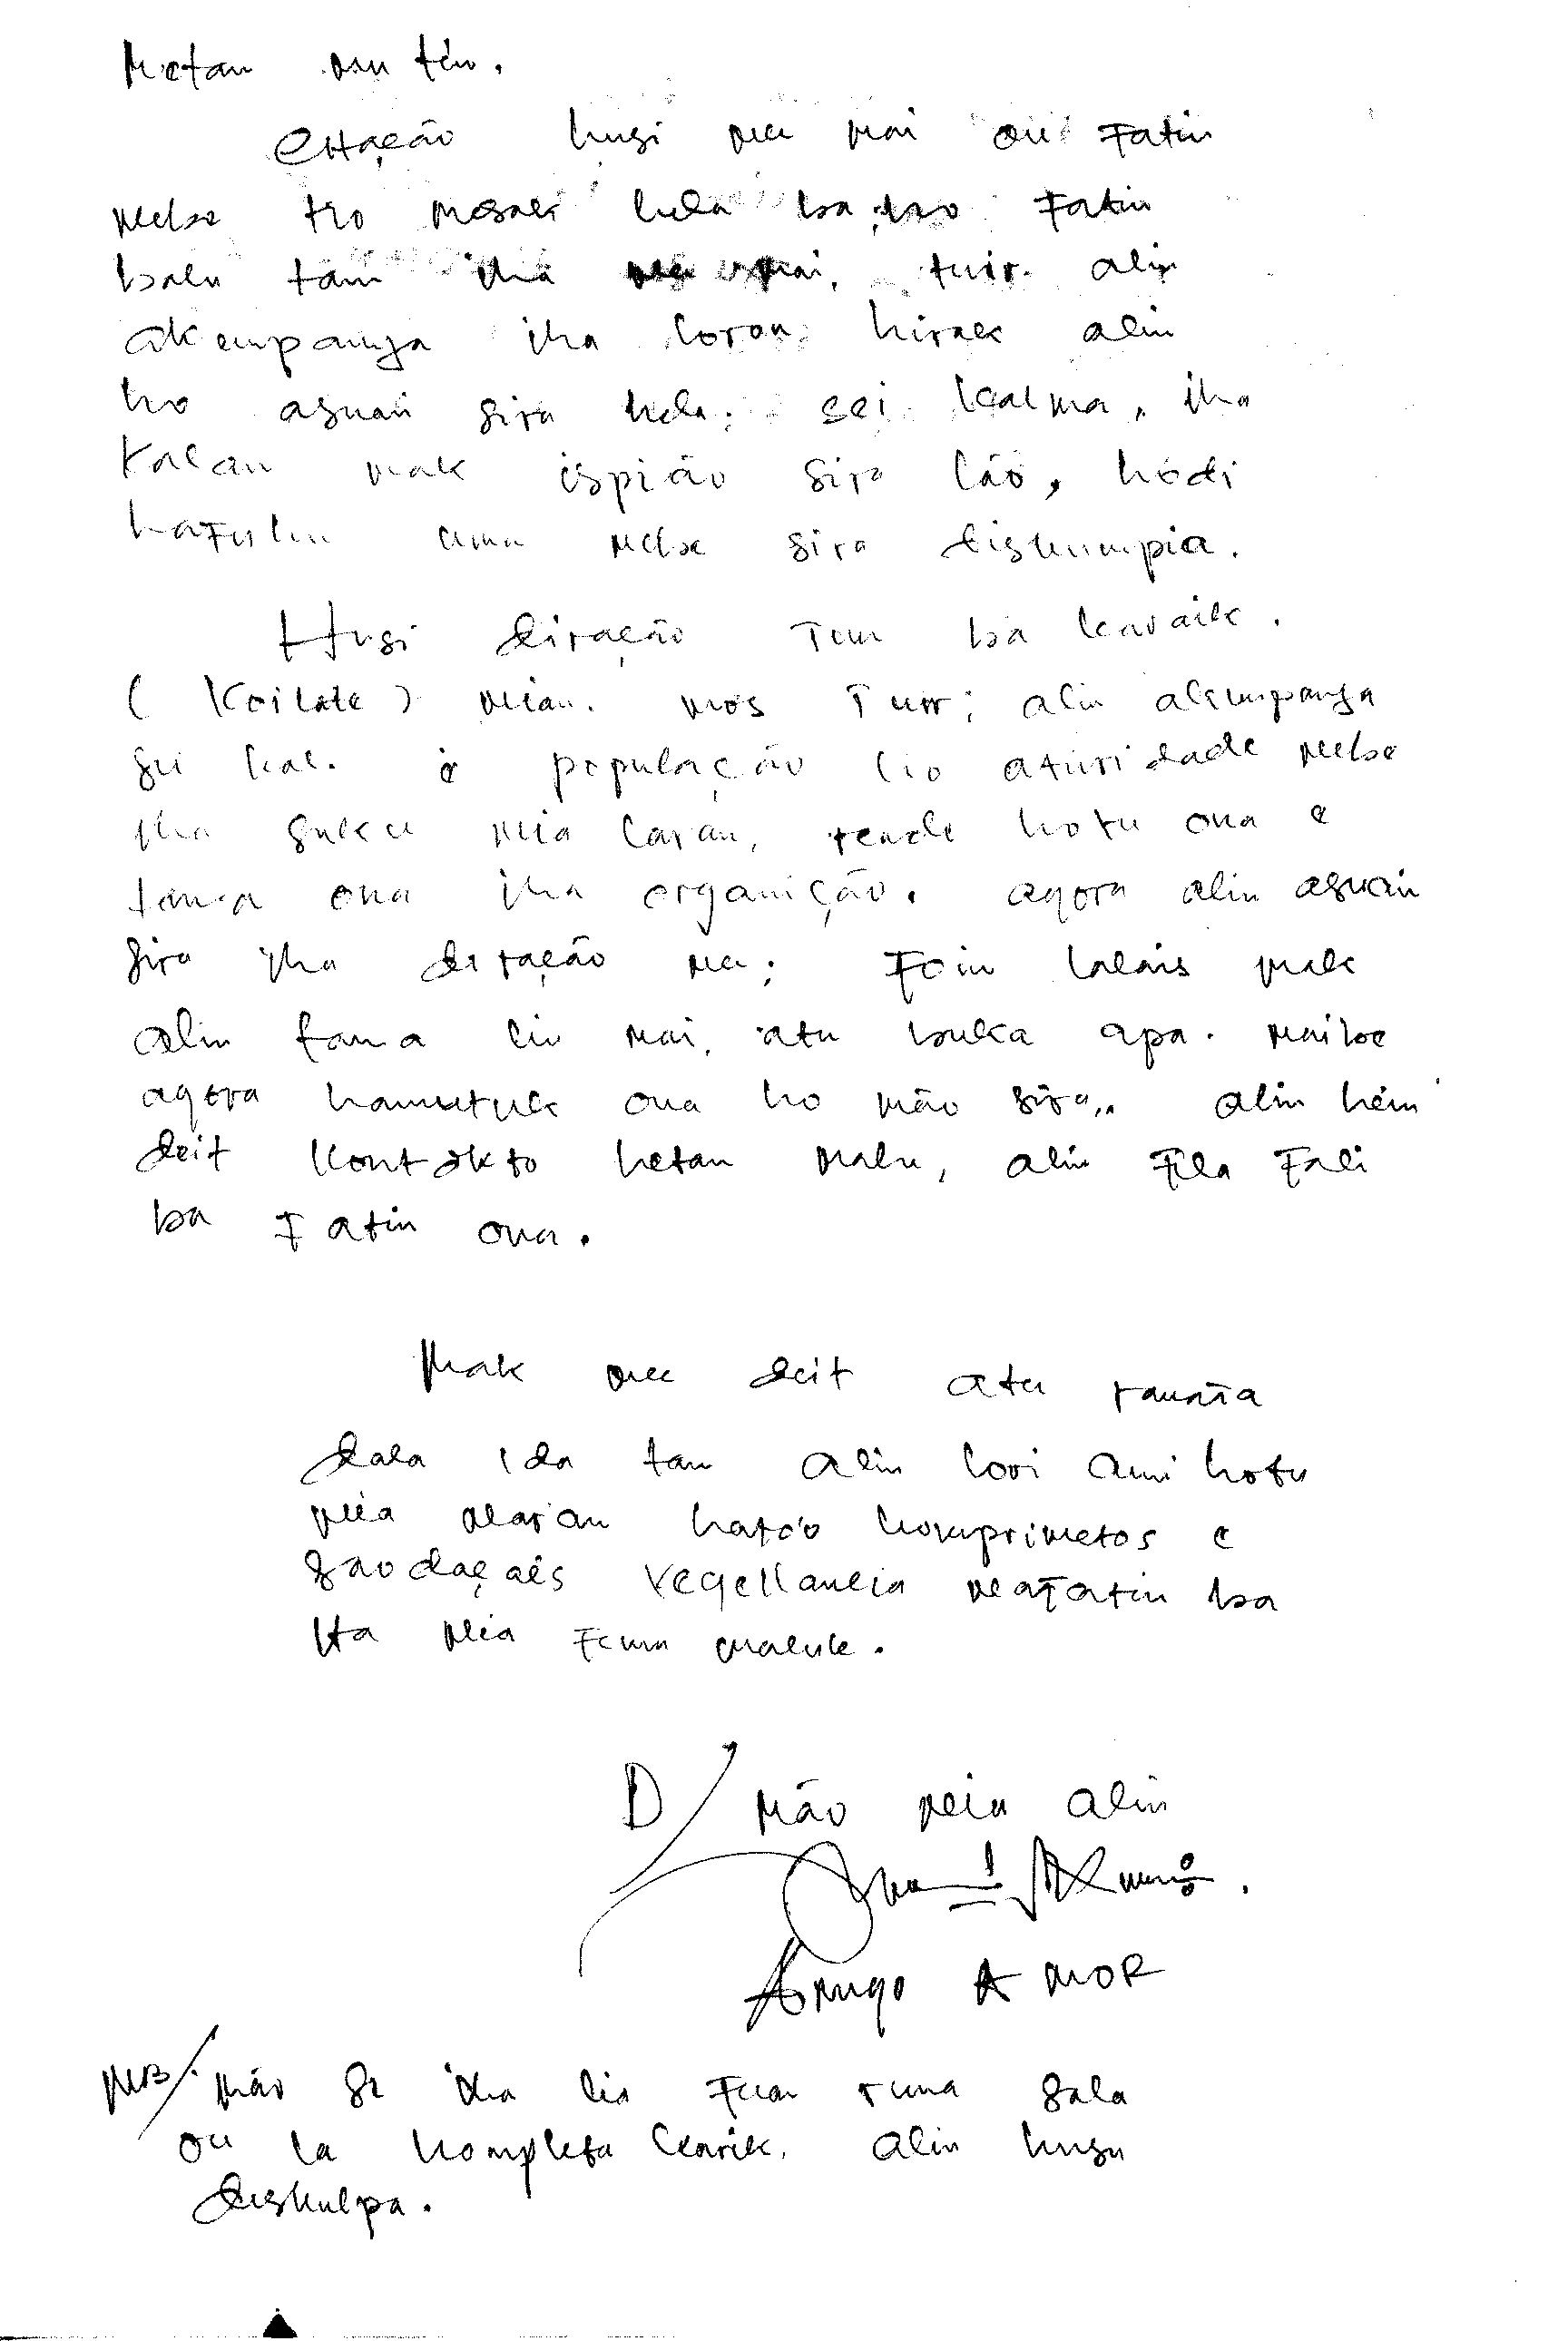 Metan nu tin.
Citação husi nee mai ou fatin
nebe tro mesak hela ba, tro fatin
balu tam iha nee mai, tuir alin
akompanya iha loron hirak alin
ho asuain sira hela; sei kalma, iha
Kalan mak ispião sira lão, hodi
hafulin uma nebe sira diskumpia.
Husi diração Tun ba karaik.
(Koilate) nian. mos Tuir; alin akumpanya
sei kal. e população lio aturidade nebe
iha suku nia laran, rende hotu ona e
tama ona iha organição. agora alin asuain
sira iha diração ne; Foin lalais mak
alin tama liu mai, atu buka apa. Maibe
agora hamutuk ona ho mão sira,, alin hein
deit Kontakto hetan malu, alin Fila Fali
ba Fatin ona.
Mak nee deit atu ramata
dala ida tan alin lori ami hotu
nia naran hato'o komprimetos e
saodaçaẽs vegellancia nafatin ba
Ita nia Fuma maluk.
D/ Mão neia alin
Amigo AMOR
NB/. Mão se iha lia Fuan ruma sala
ou la kompleta karik. alin husu
diskulpa.